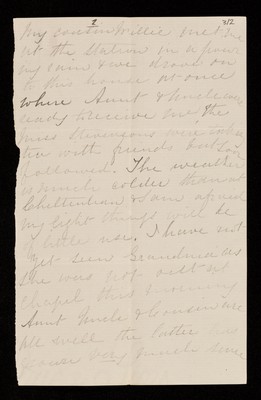 2 372
My cousin Willie met me
at the Station in a pour
ing rain & we drove on
to this house at once
where Aunt & Uncle were
ready to receive me the
Miss Stevensons were
with friends but
followed. The weather
is much colder than at
Cheltenham & I am afraid
my light things will be
of little use. I have not
yet seen Grandma as
she was not out at
chapel this morning
Aunt Uncle & Cousin are
all well the latter has
very much